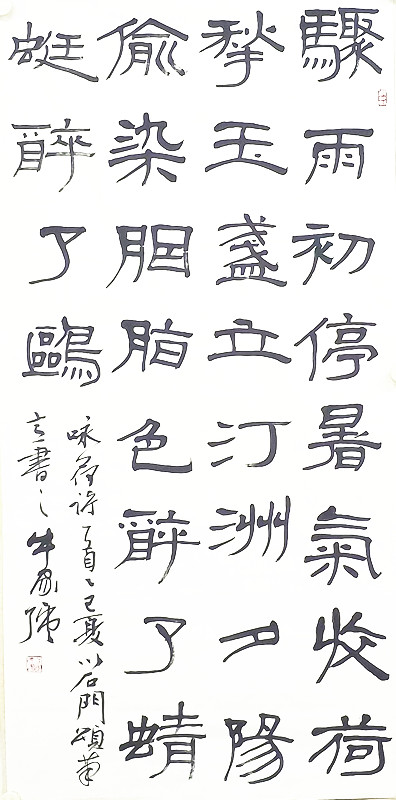 驟雨初停暑氣收荷
擎玉盞立汀洲夕陽
偷染胭脂色醉了蜻
蜓醉了鷗
咏荷詩一首乙巳夏以石門頌筆
意書之牛